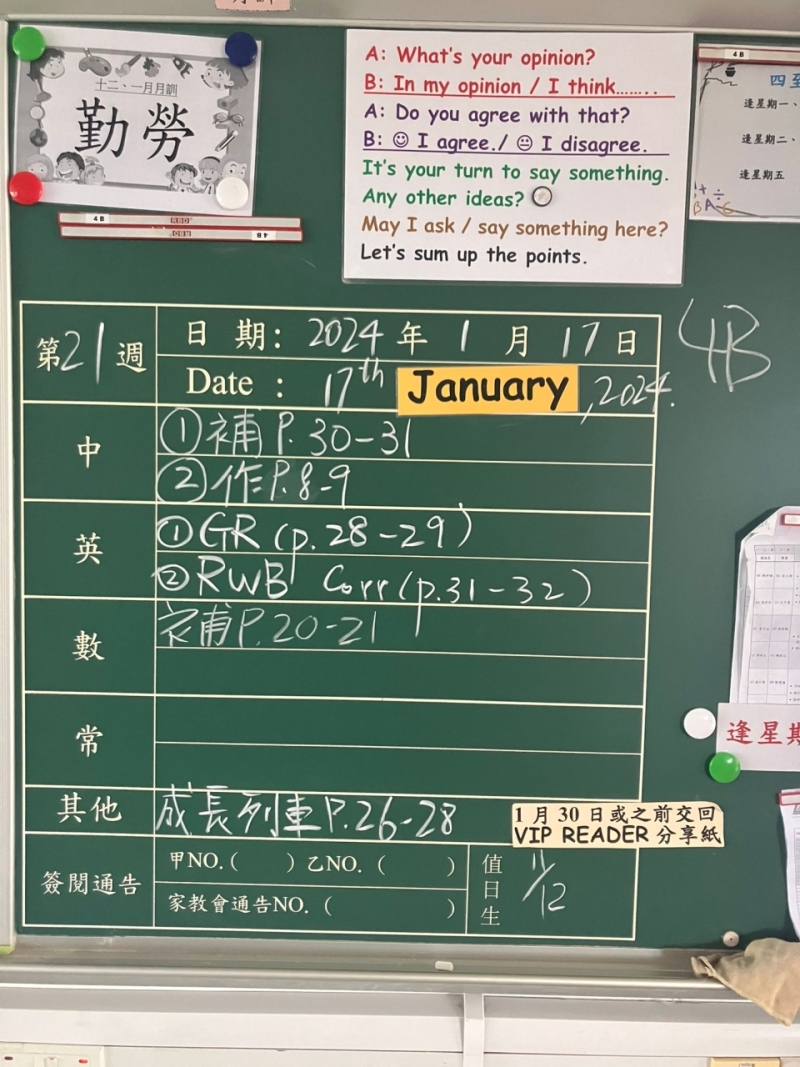 十二、一月月訓
勤勞
4B
A: What's your opinion?
B: In my opinion / I think........
A: Do you agree with that?
B: ☺ I agree./ 😐 I disagree.
It's your turn to say something.
Any other ideas?
May I ask / say something here?
Let's sum up the points.
4B
四至
逢星期一、
逢星期二、
逢星期五
4B
第21週
日 期: 2024 年 1 月 17 日
Date : 17th January, 2024.
中
①補P.30-31
②作P.8-9
英
①GR (p.28-29)
②RWB Corr (p.31-32)
數
補P.20-21
常
其他
成長列車P.26-28
1 月 30 日或之前交回
VIP READER 分享紙
簽閱通告
甲NO.( ) 乙NO. ( )
家教會通告NO. ( )
值日生
11/12
逢星期